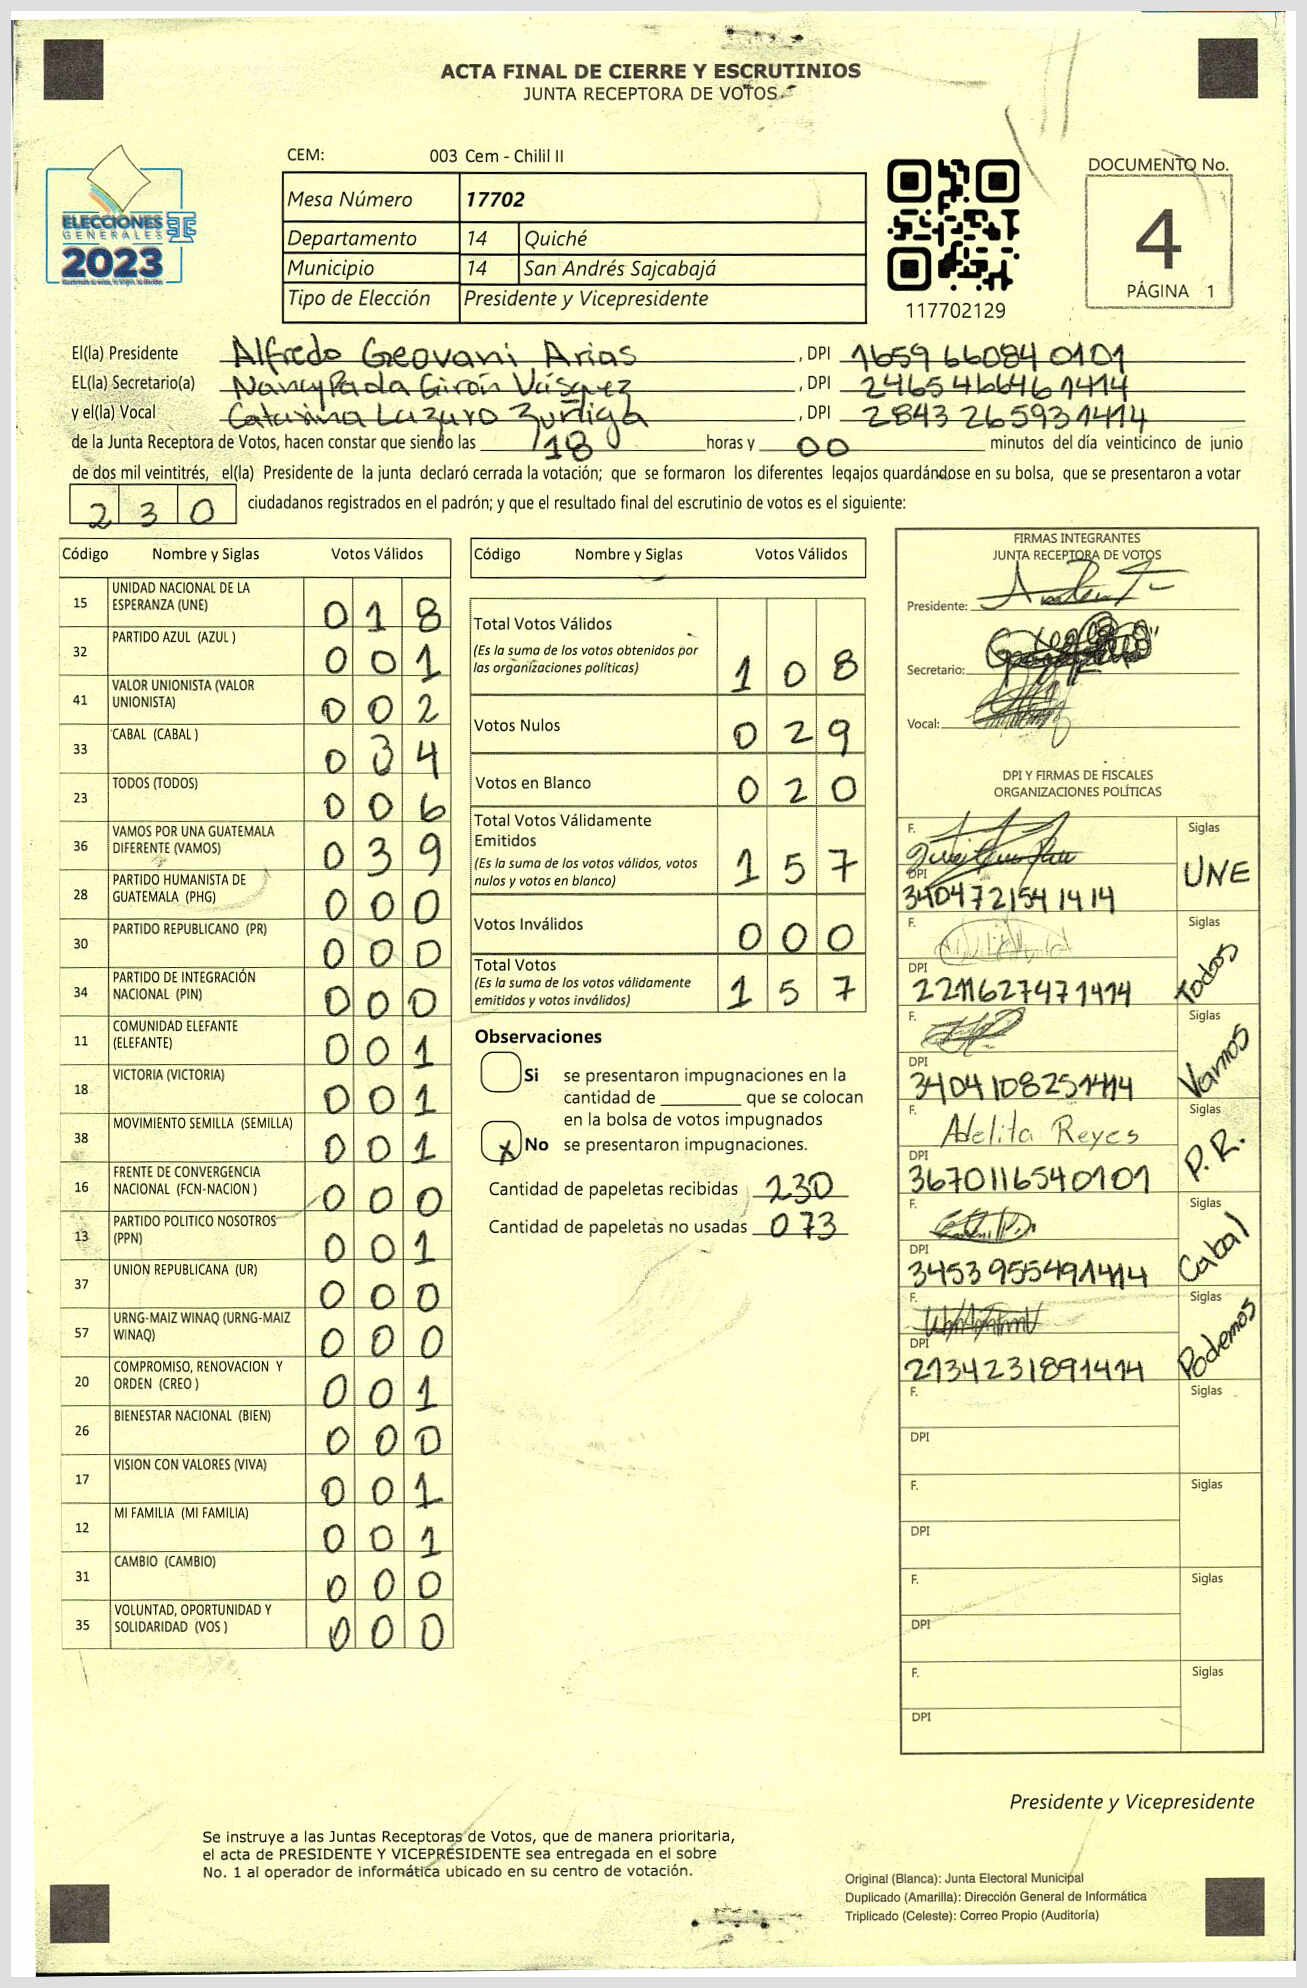 ACTA FINAL DE CIERRE Y ESCRUTINIOS
JUNTA RECEPTORA DE VOTOS
CEM: 003 Cem - Chilil II
ELECCIONES
GENERALES
2023
Mesa Número 17702
Departamento 14 Quiché
Municipio 14 San Andrés Sajcabajá
Tipo de Elección Presidente y Vicepresidente
117702129
DOCUMENTO No.
4
PÁGINA 1
El(la) Presidente Alfredo Geovani Arias, DPI 1659 66084 0101
EL(la) Secretario(a) Nancy Paola Girón Vásquez, DPI 2465 46646 1414
y el(la) Vocal Catarina Lázaro Zuñiga, DPI 2843 26593 1414
de la Junta Receptora de Votos, hacen constar que siendo las 18 horas y 00 minutos del día veinticinco de junio
de dos mil veintitrés, el(la) Presidente de la junta declaró cerrada la votación; que se formaron los diferentes legajos guardándose en su bolsa, que se presentaron a votar
230 ciudadanos registrados en el padrón; y que el resultado final del escrutinio de votos es el siguiente:
Código Nombre y Siglas Votos Válidos
15 UNIDAD NACIONAL DE LA ESPERANZA (UNE) 018
32 PARTIDO AZUL (AZUL ) 001
41 VALOR UNIONISTA (VALOR UNIONISTA) 002
33 CABAL (CABAL ) 034
23 TODOS (TODOS) 006
36 VAMOS POR UNA GUATEMALA DIFERENTE (VAMOS) 039
28 PARTIDO HUMANISTA DE GUATEMALA (PHG) 000
30 PARTIDO REPUBLICANO (PR) 000
34 PARTIDO DE INTEGRACIÓN NACIONAL (PIN) 000
11 COMUNIDAD ELEFANTE (ELEFANTE) 001
18 VICTORIA (VICTORIA) 001
38 MOVIMIENTO SEMILLA (SEMILLA) 001
16 FRENTE DE CONVERGENCIA NACIONAL (FCN-NACION ) 000
13 PARTIDO POLITICO NOSOTROS (PPN) 001
37 UNION REPUBLICANA (UR) 000
57 URNG-MAIZ WINAQ (URNG-MAIZ WINAQ) 000
20 COMPROMISO, RENOVACION Y ORDEN (CREO ) 001
26 BIENESTAR NACIONAL (BIEN) 000
17 VISION CON VALORES (VIVA) 001
12 MI FAMILIA (MI FAMILIA) 001
31 CAMBIO (CAMBIO) 000
35 VOLUNTAD, OPORTUNIDAD Y SOLIDARIDAD (VOS ) 000
Código Nombre y Siglas Votos Válidos
Total Votos Válidos
(Es la suma de los votos obtenidos por
las organizaciones políticas) 108
Votos Nulos 029
Votos en Blanco 020
Total Votos Válidamente
Emitidos
(Es la suma de los votos válidos, votos
nulos y votos en blanco) 157
Votos Inválidos 000
Total Votos
(Es la suma de los votos válidamente
emitidos y votos inválidos) 157
Observaciones
Si se presentaron impugnaciones en la
cantidad de ________ que se colocan
en la bolsa de votos impugnados
X No se presentaron impugnaciones.
Cantidad de papeletas recibidas 230
Cantidad de papeletas no usadas 073
FIRMAS INTEGRANTES
JUNTA RECEPTORA DE VOTOS
Presidente:
Secretario:
Vocal:
DPI Y FIRMAS DE FISCALES
ORGANIZACIONES POLÍTICAS
F. Siglas UNE
DPI 3404721541414
F. Siglas Todos
DPI 2211627471414
F. Siglas Vamos
DPI 3404108251414
F. Adelita Reyes Siglas P.R.
DPI 3670116540101
F. Siglas Cabal
DPI 3453955491414
F. Siglas Podemos
DPI 2134231891414
F. Siglas
DPI
F. Siglas
DPI
F. Siglas
DPI
F. Siglas
DPI
Presidente y Vicepresidente
Se instruye a las Juntas Receptoras de Votos, que de manera prioritaria,
el acta de PRESIDENTE Y VICEPRESIDENTE sea entregada en el sobre
No. 1 al operador de informática ubicado en su centro de votación.
Original (Blanca): Junta Electoral Municipal
Duplicado (Amarilla): Dirección General de Informática
Triplicado (Celeste): Correo Propio (Auditoría)